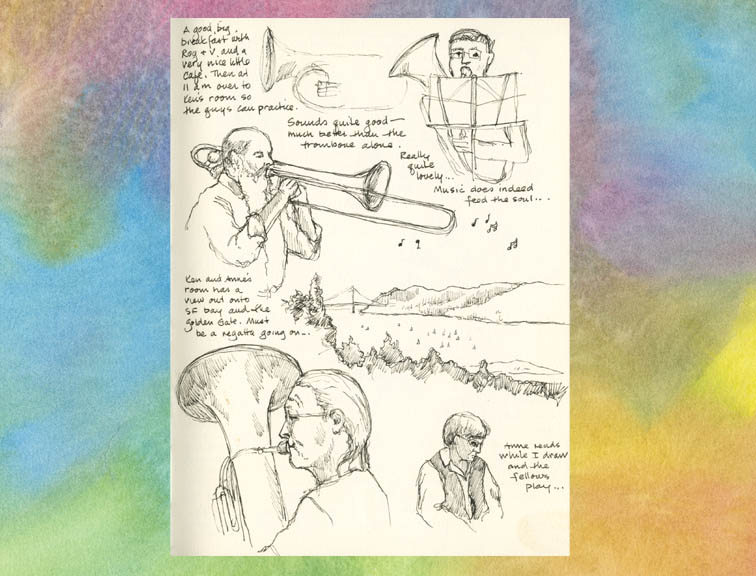 A good, big
breakfast with
Roy + V. and a
very nice little
café. Then at
11 am over to
Ken's room so
the guys can practice.
Sounds quite good—
much better than the
trombone alone.
Really
quite
lovely...
Music does indeed
feed the soul...
Ken and Anne's
room has a
view out onto
SF bay and the
Golden Gate. Must
be a regatta going on...
Anne reads
while I draw
and the
fellows
play...